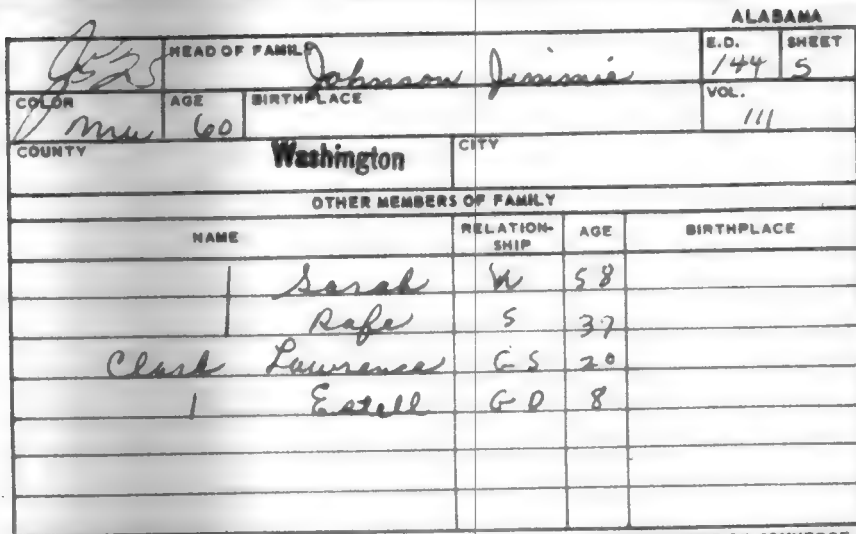 ALABAMA
J525 HEAD OF FAMILY Johnson Jimmie E.D. 144 SHEET 5
COLOR Mu AGE 60 BIRTHPLACE VOL. 111
COUNTY Washington CITY
OTHER MEMBERS OF FAMILY
NAME RELATION-SHIP AGE BIRTHPLACE
| Sarah W 58
| Rafe S 37
Clark Lawrence GS 20
| Estell GD 8